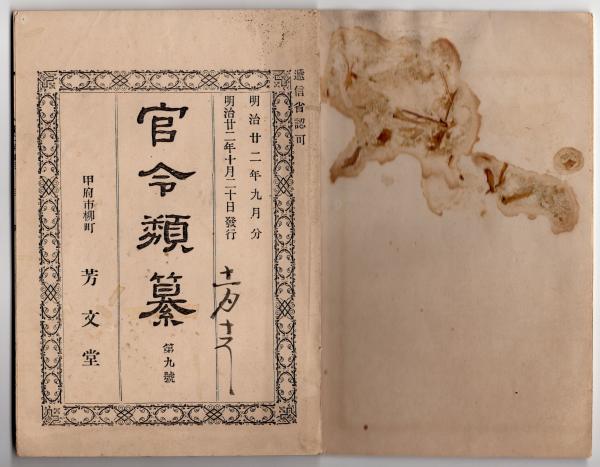 遞信省認可
明治廿二年九月分
明治廿二年十月二十日發行
官令類纂
第九號
甲府市柳町
芳文堂